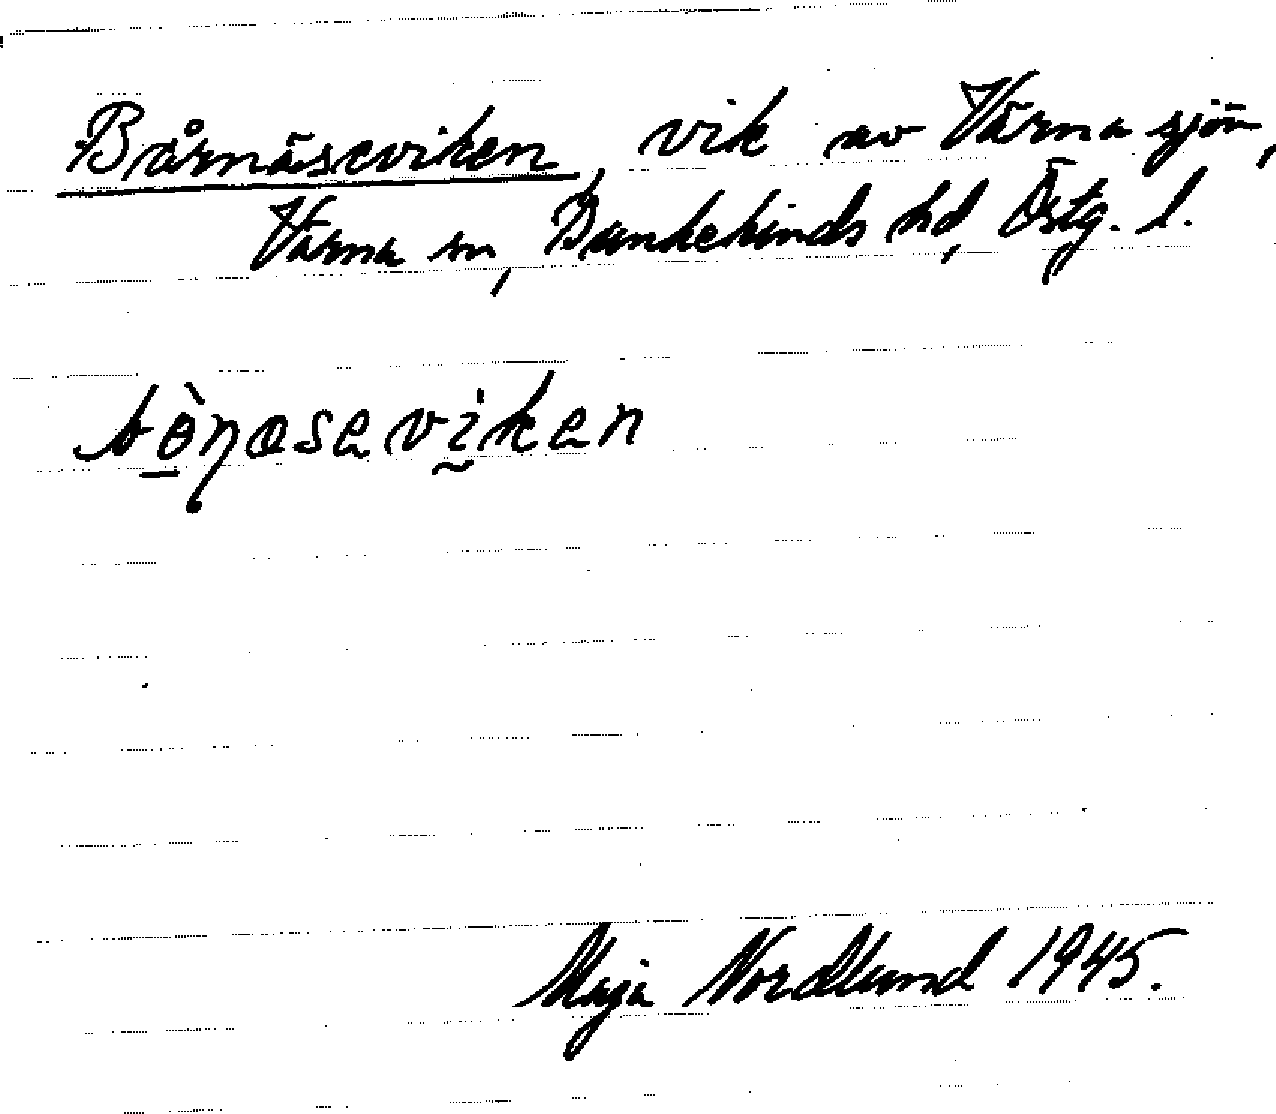 Bårnäseviken, vik av Värnasjön,
Värna sn, Bankekinds hd, Östg. l.
Maja Nordlund 1945.